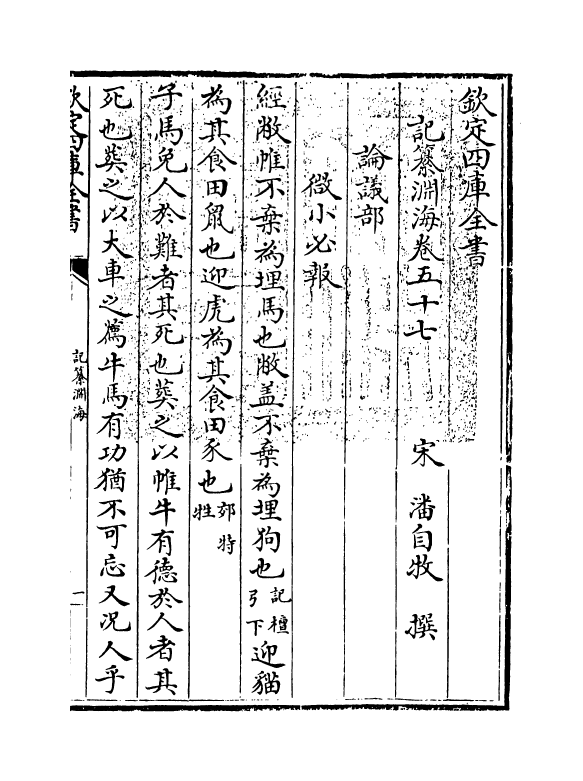 欽定四庫全書
記纂淵海卷五十七　宋　潘自牧　撰
論議部
微小必報
經敝帷不棄為埋馬也敝盖不棄為埋狗也記檀弓下迎貓
為其食田鼠也迎虎為其食田豕也郊特牲
子馬免人於難者其死也葬之以帷牛有德於人者其
死也葬之以大車之薦牛馬有功猶不可忘又況人乎
欽定四庫全書
記纂淵海
一